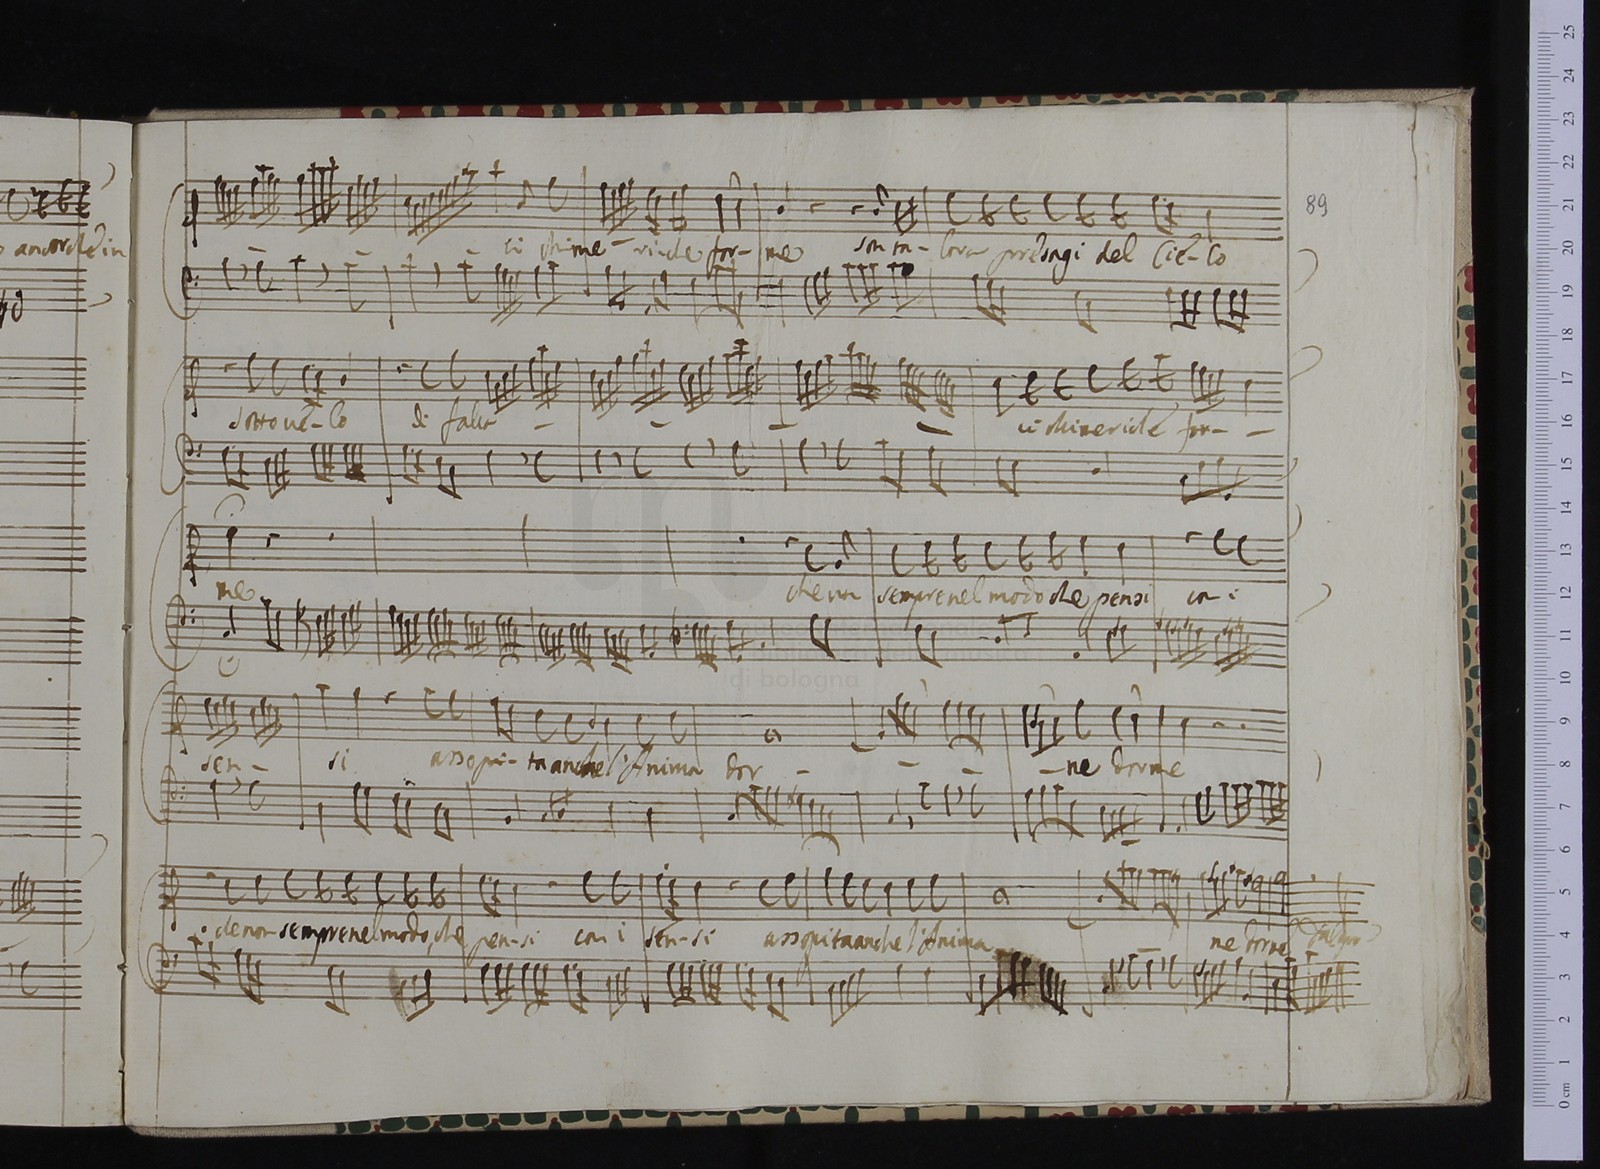 89
ancorche in
ci chime - ride for - me son ta - lora presagi del Cie - lo
sotto ve - lo di fal
ci chimeride for -
me che non sempre nel modo che pensi con i
sen - si assopi - ta anche l'Anima dor - ne dorme
che non sempre nel modo che pen - si con i sen - si assopita anche l'Anima ne dorme
museo internazionale
e biblioteca della musica
di bologna
25
24
23
22
21
20
19
18
17
16
15
14
13
12
11
10
9
8
7
6
5
4
3
2
1
0 cm